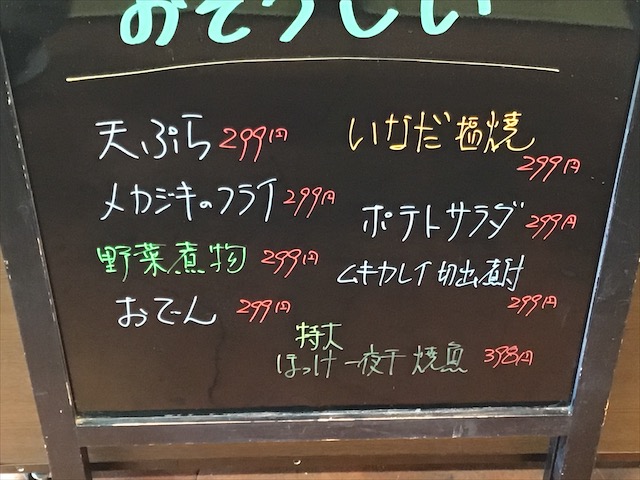 おそうしい
天ぷら 299円
メカジキのフライ 299円
野菜煮物 299円
おでん 299円
いなだ塩焼
299円
ポテトサラダ 299円
ムキカレイ切出煮付
299円
特大
ほっけ一夜干焼魚 398円